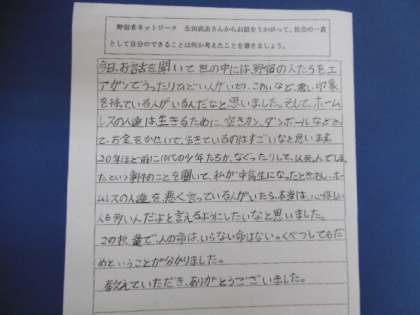 野宿者ネットワーク 生田武志さんからお話をうかがって、社会の一員
として自分のできることは何か考えたことを書きましょう。
今日、お話を聞いて世の中には野宿の人たちをエ
アガンでうったりひどい人がいたり、こわいなど、悪い印象
を持っている人がいるんだなと思いました。そして、ホーム
レスの人達は生きるために、空きカン、ダンボールなどをと
て、お金をかせいで、生きているのはすごいなと思います。
20年ほど前に の少年たちが、なぐったりして、 死んでしま
たという事件のことを聞いて、私が中学生になったとき ホー
ムレスの人達を悪く言っている人がいたら、本当は、心優しい
人も多い人だよと言えるようにしたいなと思いました。
この授業で人の命は、いらない命はない。くべつしてもだ
めということが分かりました。
教えていただき、ありがとうございました。